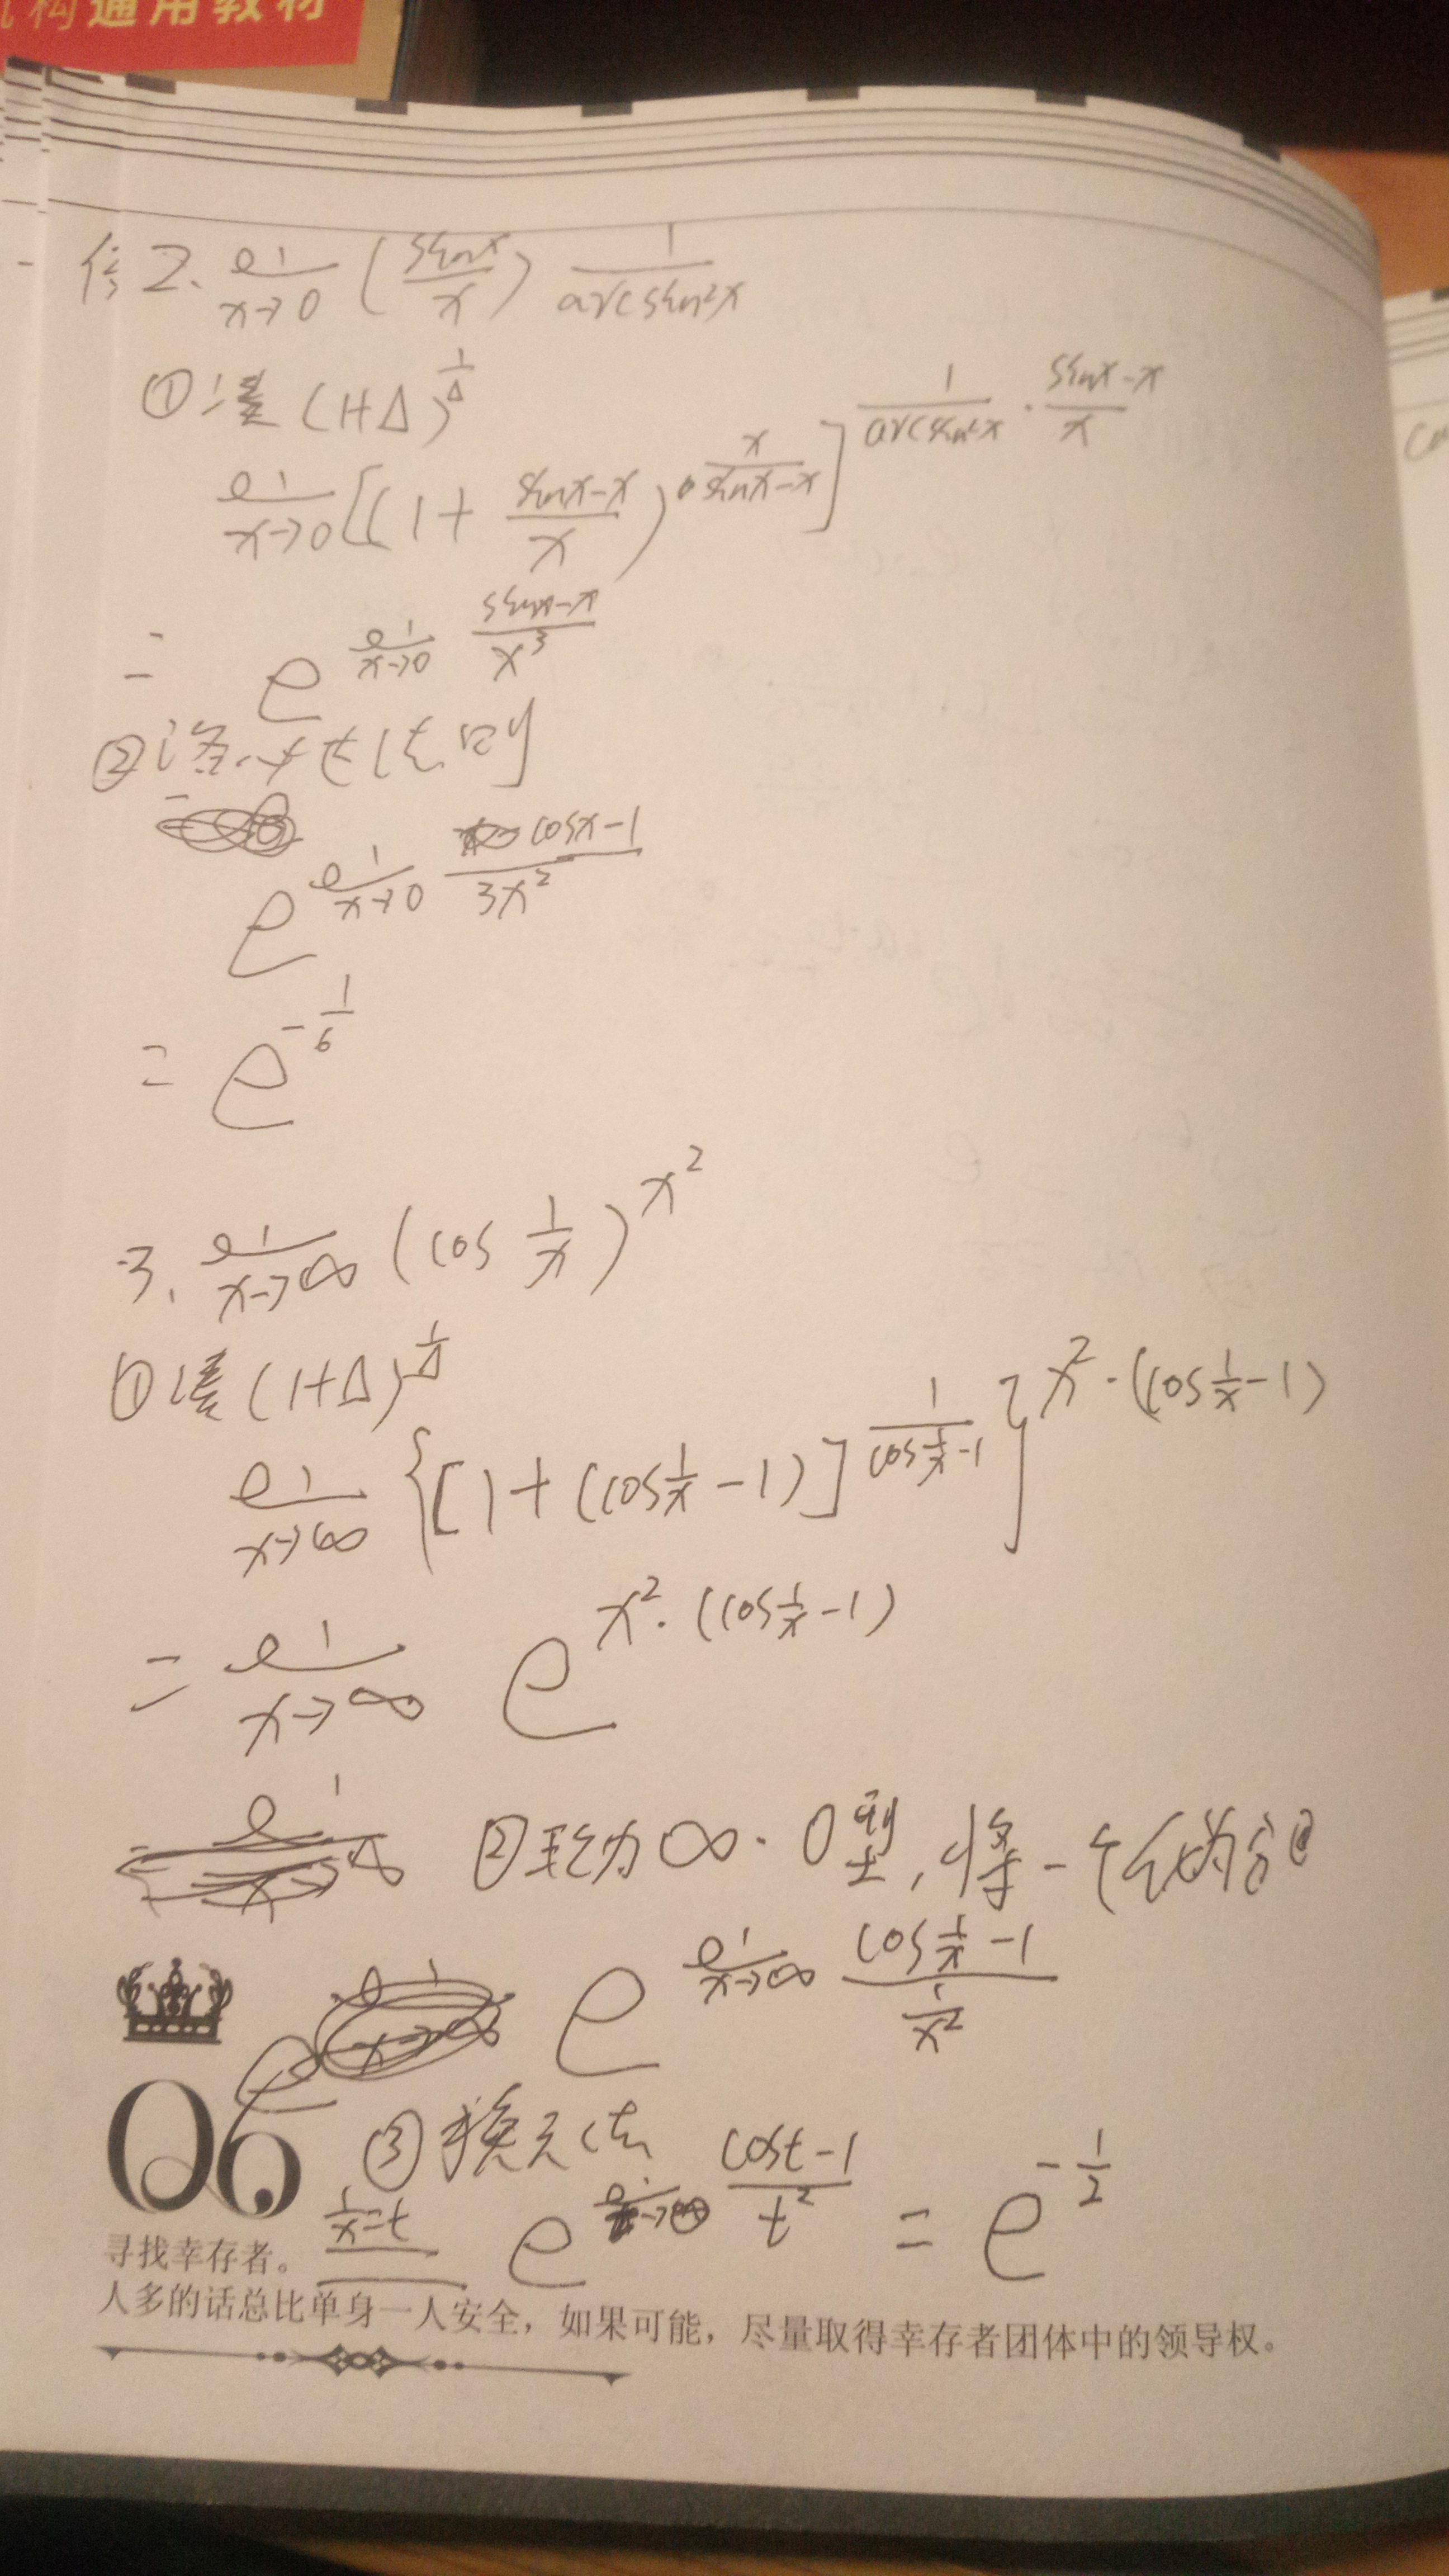 构通用教材
例2. lim x→0 (sinx/x)^(1/arcsin²x)
① 凑 (1+Δ)^(1/Δ)
lim x→0 [(1+ (sinx-x)/x)^(x/(sinx-x))]^(1/arcsin²x · (sinx-x)/x)
= e^(lim x→0 (sinx-x)/x³)
②洛必达法则
= e^(lim x→0 (cosx-1)/3x²)
= e^(-1/6)
3. lim x→∞ (cos 1/x)^(x²)
①凑 (1+Δ)^(1/Δ)
lim x→∞ {[1+(cos 1/x -1)]^(1/(cos 1/x -1))]^(x²·(cos 1/x -1))
= lim x→∞ e^(x²·(cos 1/x -1))
②现为∞·0型,将一个化为分母
e^(lim x→∞ (cos 1/x -1)/(1/x²))
06
③换元法
1/x=t e^(lim (cost-1)/t²) = e^(-1/2)
寻找幸存者。
人多的话总比单身一人安全,如果可能,尽量取得幸存者团体中的领导权。